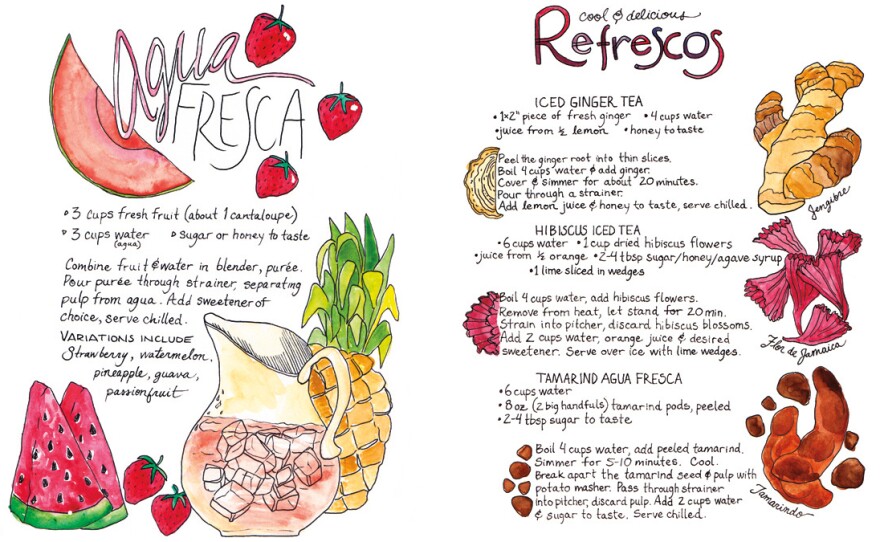 Agua
FRESCA
• 3 cups fresh fruit (about 1 cantaloupe)
• 3 cups water • sugar or honey to taste
(agua)
Combine fruit & water in blender, purée.
Pour purée through strainer, separating
pulp from agua. Add sweetener of
choice, serve chilled.
VARIATIONS INCLUDE
Strawberry, watermelon,
pineapple, guava,
passionfruit
cool & delicious
Refrescos
ICED GINGER TEA
• 1x2" piece of fresh ginger • 4 cups water
• juice from ½ lemon • honey to taste
Peel the ginger root into thin slices.
Boil 4 cups water & add ginger.
Cover & simmer for about 20 minutes.
Pour through a strainer.
Add lemon juice & honey to taste, serve chilled.
Jengibre
HIBISCUS ICED TEA
• 6 cups water • 1 cup dried hibiscus flowers
• juice from ½ orange • 2-4 tbsp sugar/honey/agave syrup
• 1 lime sliced in wedges
Boil 4 cups water, add hibiscus flowers.
Remove from heat, let stand for 20 min.
Strain into pitcher, discard hibiscus blossoms.
Add 2 cups water, orange juice & desired
sweetener. Serve over ice with lime wedges.
Flor de Jamaica
TAMARIND AGUA FRESCA
• 6 cups water
• 8 oz (2 big handfuls) tamarind pods, peeled
• 2-4 tbsp sugar to taste
Boil 4 cups water, add peeled tamarind.
Simmer for 5-10 minutes. Cool.
Break apart the tamarind seed & pulp with
potato masher. Pass through strainer
into pitcher, discard pulp. Add 2 cups water
& sugar to taste. Serve chilled.
Tamarindo